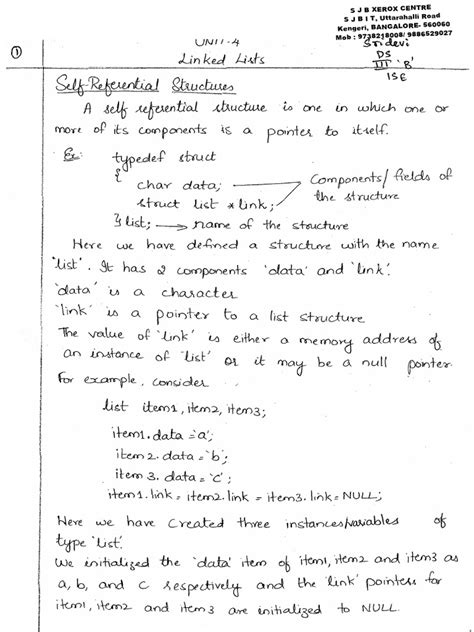 S J B XEROX CENTRE
S J B I T, Uttarahalli Road
Kengeri, BANGALORE- 560060
Mob : 9738218008/ 9886529027
Sridevi
DS
III 'B'
ISE
①
UNIT-4
Linked Lists
Self-Referential Structures
A self referential structure is one in which one or
more of its components is a pointer to itself.
Ex: typedef struct
{
char data;
struct list *link;
Components/fields of
the structure
} list; → name of the structure
Here we have defined a structure with the name
'list'. It has 2 components 'data' and 'link'.
'data' is a character
'link' is a pointer to a list structure
The value of 'link' is either a memory address of
an instance of 'list' or it may be a null pointer
For example, consider
list item1, item2, item3;
item1.data ='a';
item2.data ='b';
item3.data ='c';
item1.link = item2.link = item3.link = NULL;
Here we have created three instances/variables of
type 'list'.
We initialized the 'data' item of item1, item2 and item3 as
a, b, and c respectively and the 'link' pointers for
item1, item2 and item3 are initialized to NULL.